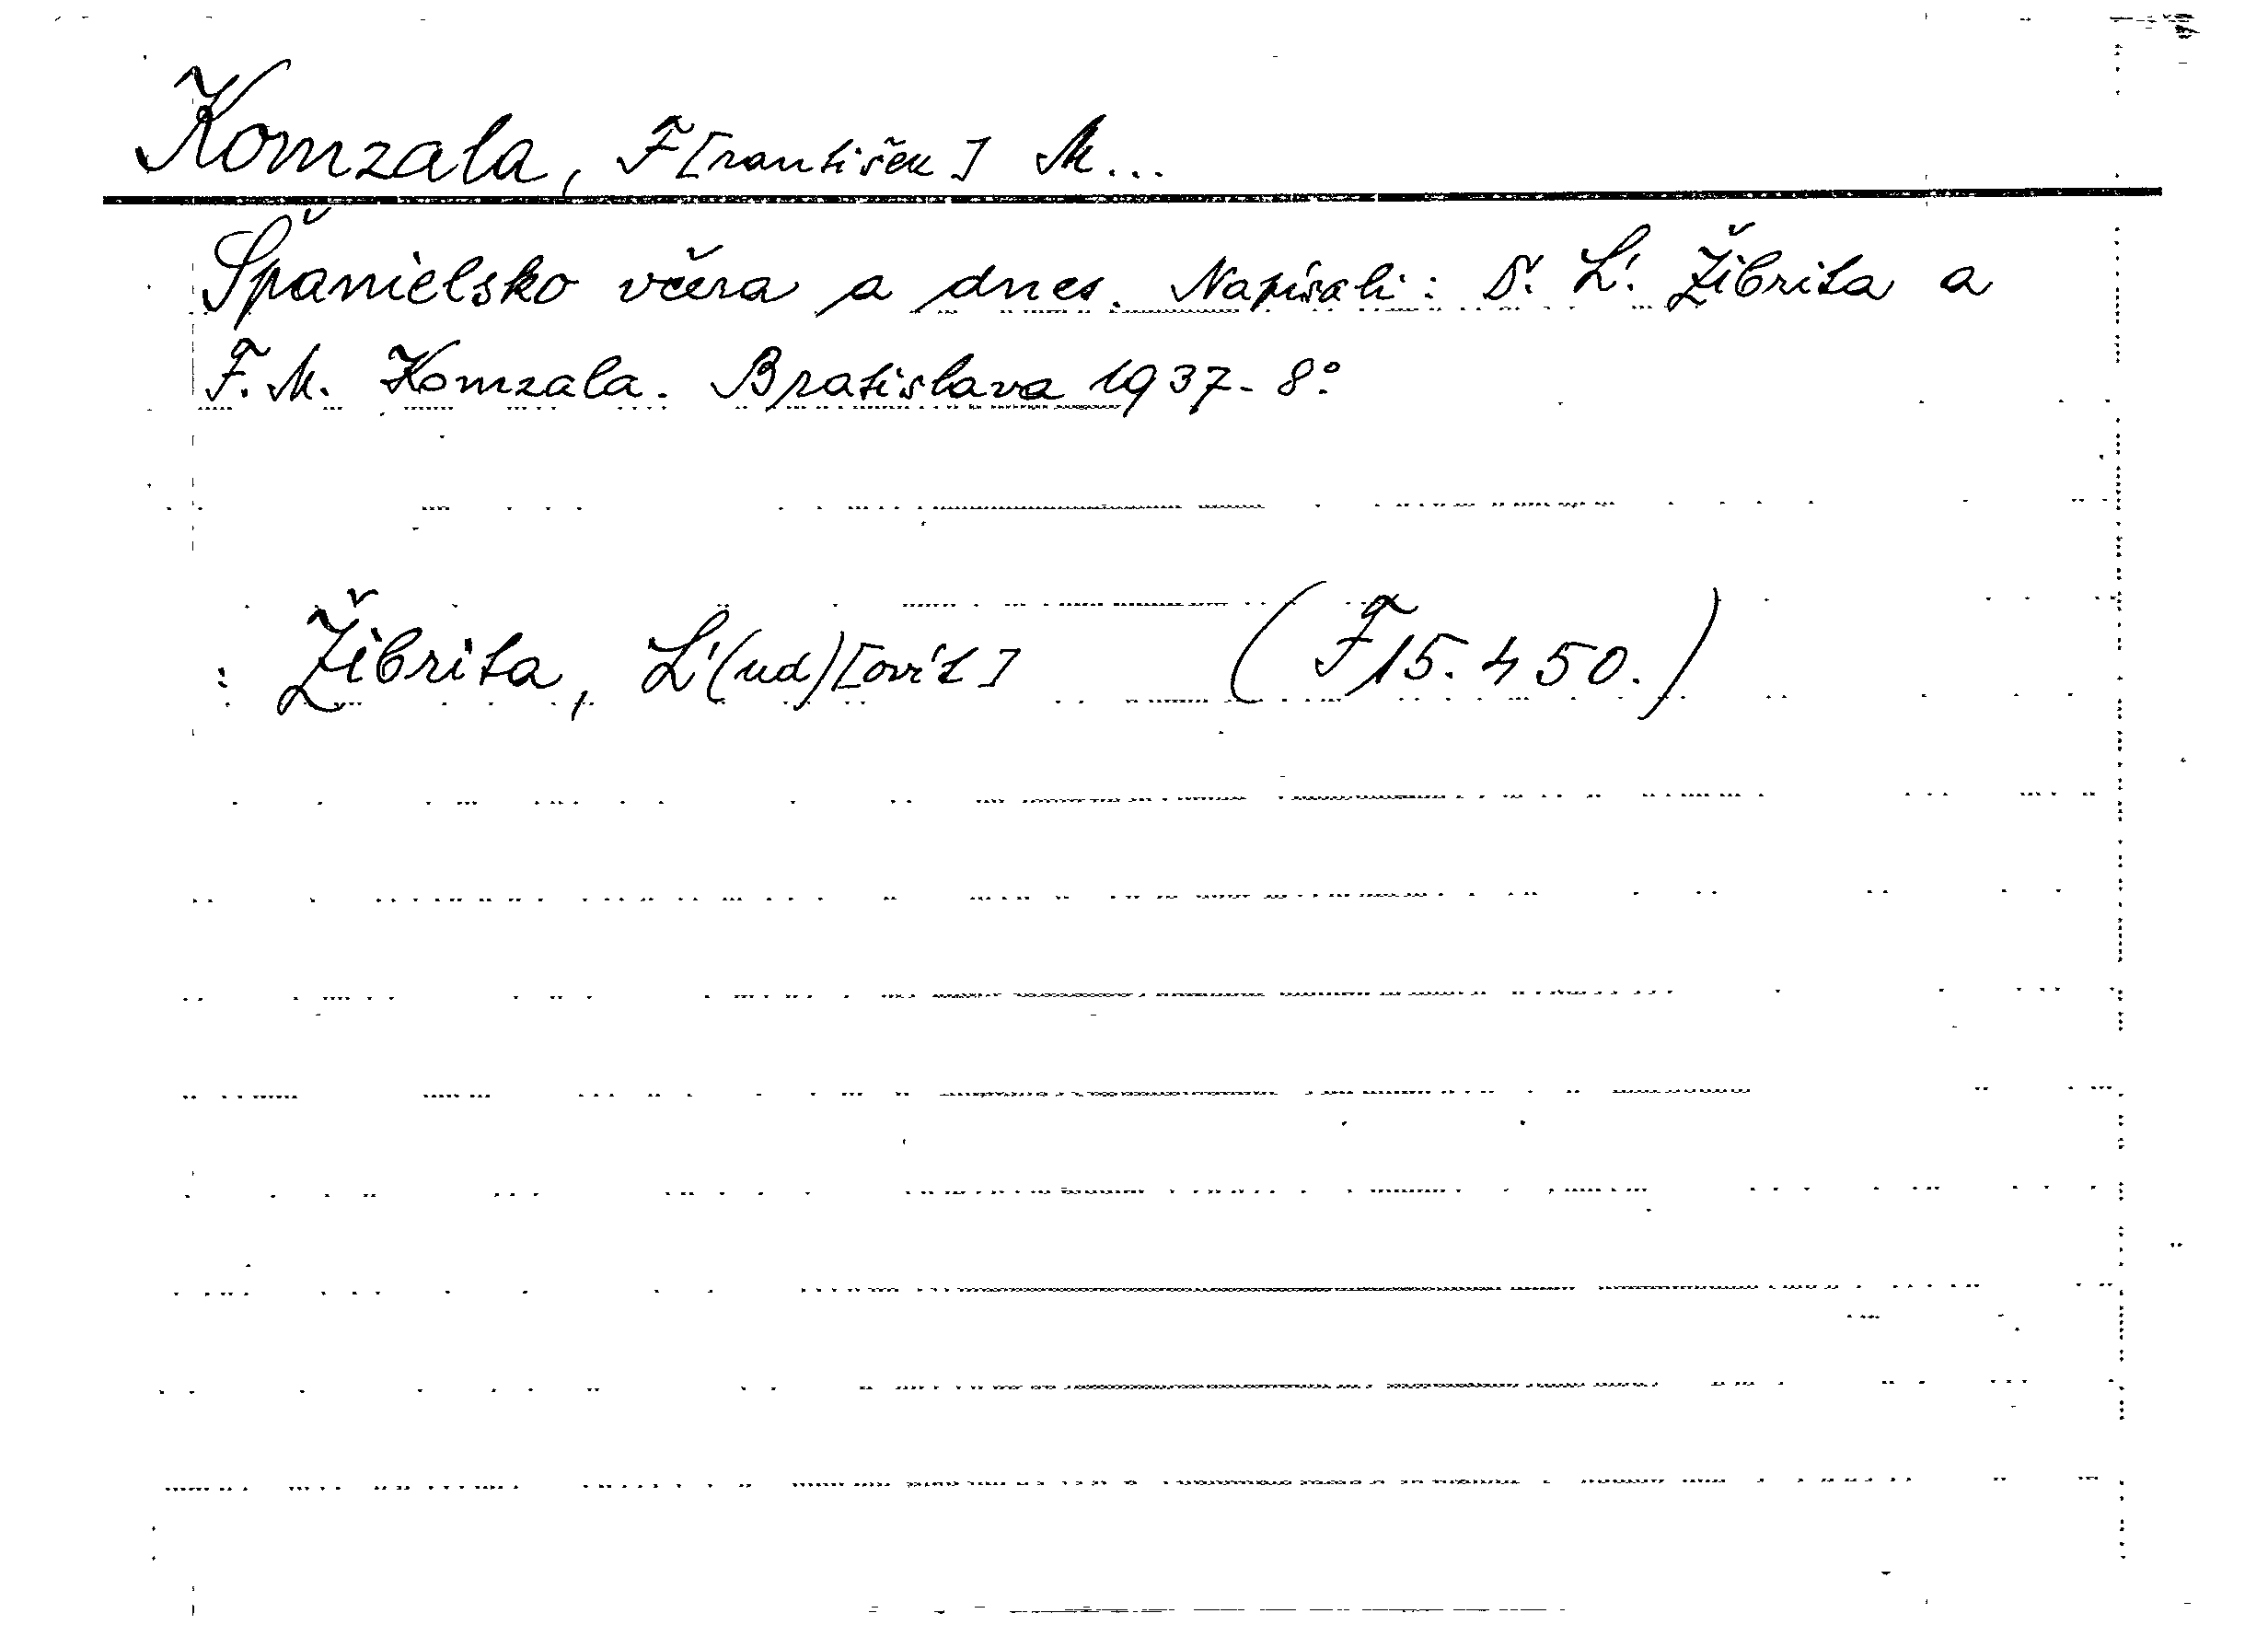 Komzala, F[rantišek] M...
Španielsko včera a dnes. Napísali: D. Ľ. Žibrita a
F. M. Komzala. Bratislava 1937 - 8°.
: Žibrita, Ľ(ud)[ovít] (F 15.450.)